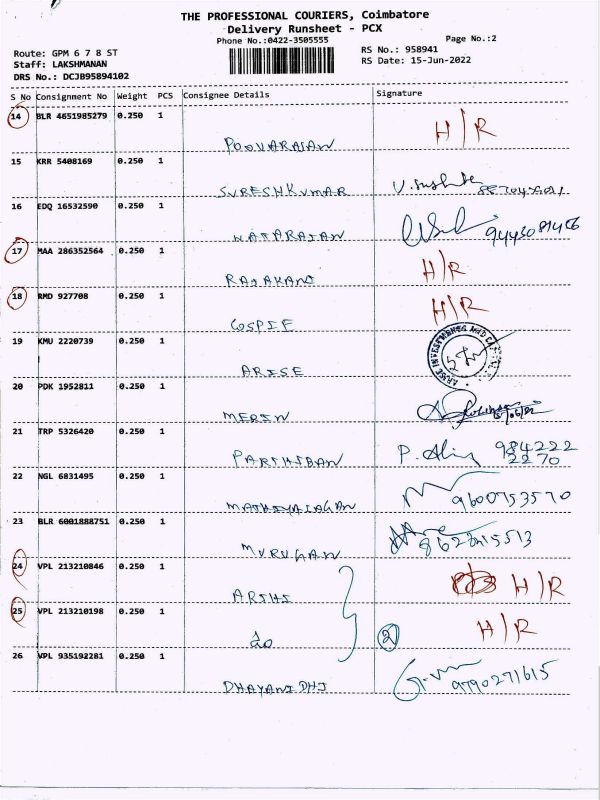 THE PROFESSIONAL COURIERS, Coimbatore
Delivery Runsheet - PCX
Phone No.:0422-3505555
Page No.:2
Route: GPM 6 7 8 ST
Staff: LAKSHMANAN
DRS No.: DCJB95894102
RS No.: 958941
RS Date: 15-Jun-2022
S No Consignment No Weight PCS Consignee Details Signature
14 BLR 4651985279 0.250 1
POOVARASAN H/R
15 KRR 5408169 0.250 1
SURESHKUMAR
16 EDQ 16532590 0.250 1
NATARAJAN
17 MAA 286352564 0.250 1
RAJAKANI H/R
18 RMD 927708 0.250 1
COSPIE H/R
19 KMU 2220739 0.250 1
ARISE
20 PDK 1952811 0.250 1
MERIN
21 TRP 5326420 0.250 1
PARTHIBAN 984222
2270
22 NGL 6831495 0.250 1
MATHIYALAGAN 9600753570
23 BLR 6001888751 0.250 1
MURUGAN
24 VPL 213210846 0.250 1
ARTHI H/R
25 VPL 213210198 0.250 1
do 2 H/R
26 VPL 935192281 0.250 1
DHAYANIDHI 9790271615